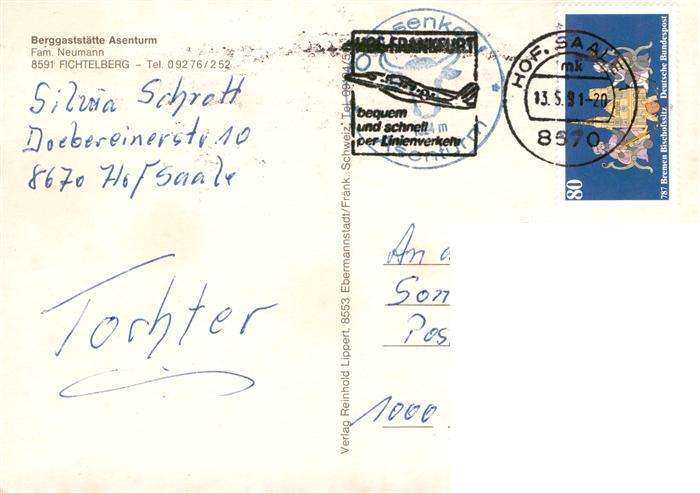 Berggaststätte Asenturm
Fam. Neumann
8591 FICHTELBERG – Tel. 09276/252
Silvia Schrott
Doebereinerstr 10
8670 Hof/Saale
Tochter
Verlag Reinhold Lippert, 8553 Ebermannstadt/Fränk. Schweiz, Tel.
HOF-FRANKFURT
bequem
und schnell
per Linienverkehr
Asenturm
HOF, SAALE
mk
13.5.91-20
8670
80
787 Bremen Bischofssitz Deutsche Bundespost
An
Son
Pos
1000